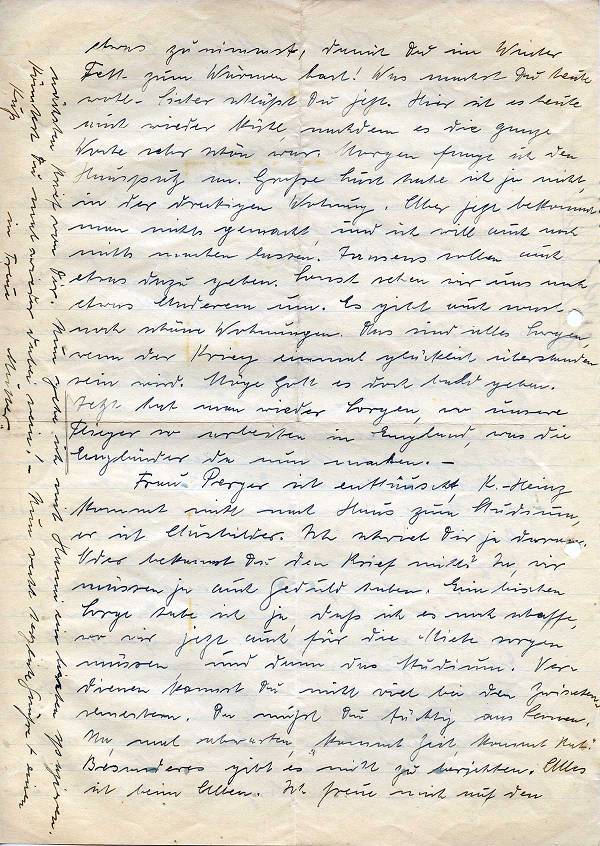 etwas zunimmst, damit Du im Winter
Fett zum Wärmen hast! Was machst Du heute
wohl. Sicher schläfst Du jetzt. Hier ist es heute
auch wieder kühl nachdem es die ganze
Woche sehr schön war. Morgen fange ich den
Hausputz an. Große Lust habe ich ja nicht,
in der dreckigen Wohnung. Aber jetzt bekommt
man nichts gemacht, und ich will auch noch
nichts machen lassen. sollen auch
etwas dazu geben. Sonst sehen wir uns nach
etwas Anderem um. Es gibt auch
noch schöne Wohnungen. Das sind alles Sorgen,
wenn der Krieg einmal glücklich überstanden
sein wird. Möge Gott es doch bald geben.
Jetzt hat man wieder Sorgen, wo unsere
Flieger so arbeiten in England, was die
Engländer da nun machen. –
Frau Perger ist enttäuscht, K.-Heinz
kommt nicht nach Haus zum Studium,
er ist Ausbilder. Ich schrieb Dir ja davon.
Oder bekamst Du den Brief nicht? Ja, wir
müssen ja auch Geduld haben. Ein bischen
Sorge habe ich ja, daß ich es noch schaffe,
wo wir jetzt auch für die Miete sorgen
müssen und dann das Studium. Ver-
dienen kannst Du nicht viel bei den Zwischen-
semestern. Da mußt Du tüchtig Lernen.
Na, mal abwarten, "kommt Zeit, kommt Rat."
Besonderes gibt es nicht zu berichten. Alles
ist beim Alten. Ich freue mich auf den
nächsten Brief von Dir. Nun gehe ich mit Hanni ein bischen spazieren.
Könntest Du mal wieder dabei sein! – Nun recht Grüße + einen
Kuß
in Treue Mutter